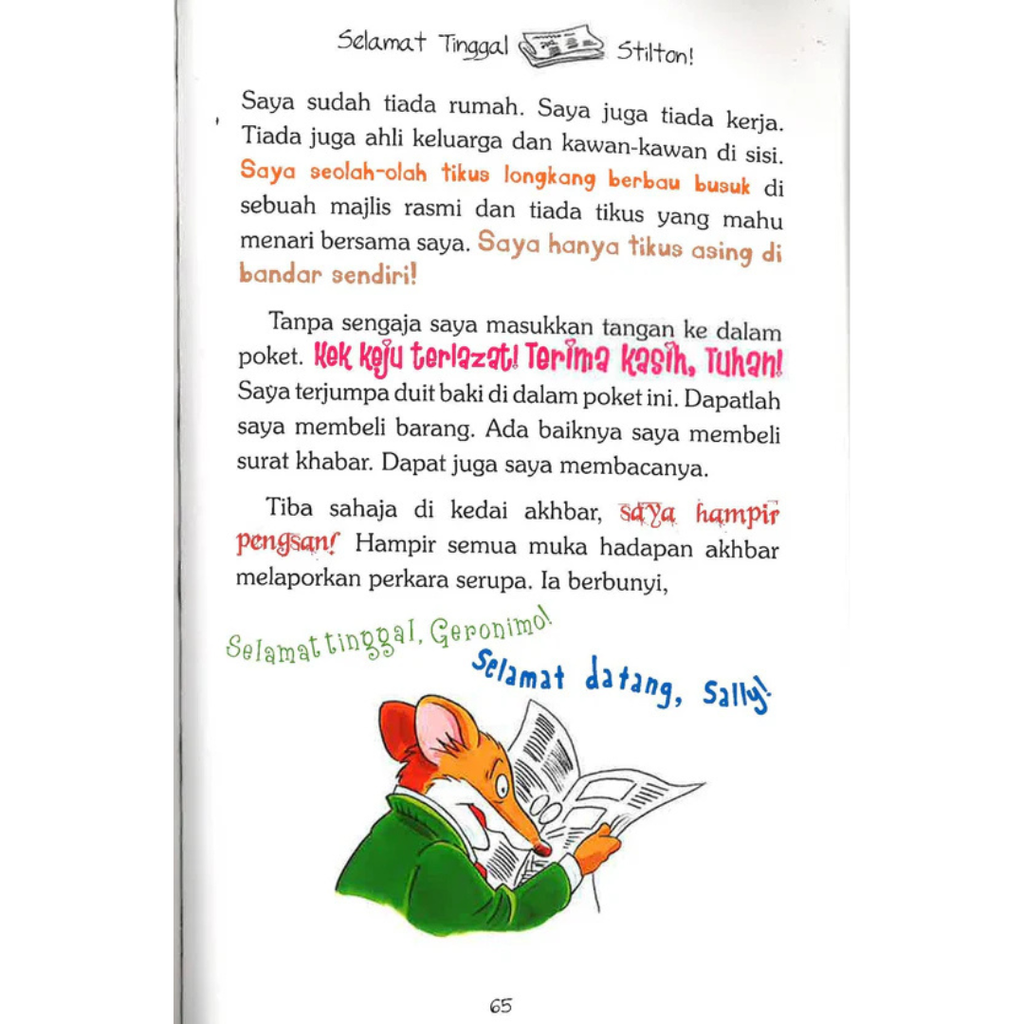 Selamat Tinggal Stilton!
Saya sudah tiada rumah. Saya juga tiada kerja.
Tiada juga ahli keluarga dan kawan-kawan di sisi.
Saya seolah-olah tikus longkang berbau busuk di
sebuah majlis rasmi dan tiada tikus yang mahu
menari bersama saya. Saya hanya tikus asing di
bandar sendiri!
Tanpa sengaja saya masukkan tangan ke dalam
poket. Kek keju terlazat! Terima kasih, Tuhan!
Saya terjumpa duit baki di dalam poket ini. Dapatlah
saya membeli barang. Ada baiknya saya membeli
surat khabar. Dapat juga saya membacanya.
Tiba sahaja di kedai akhbar, saya hampir
pengsan! Hampir semua muka hadapan akhbar
melaporkan perkara serupa. Ia berbunyi,
Selamat tinggal, Geronimo!
Selamat datang, Sally!
65